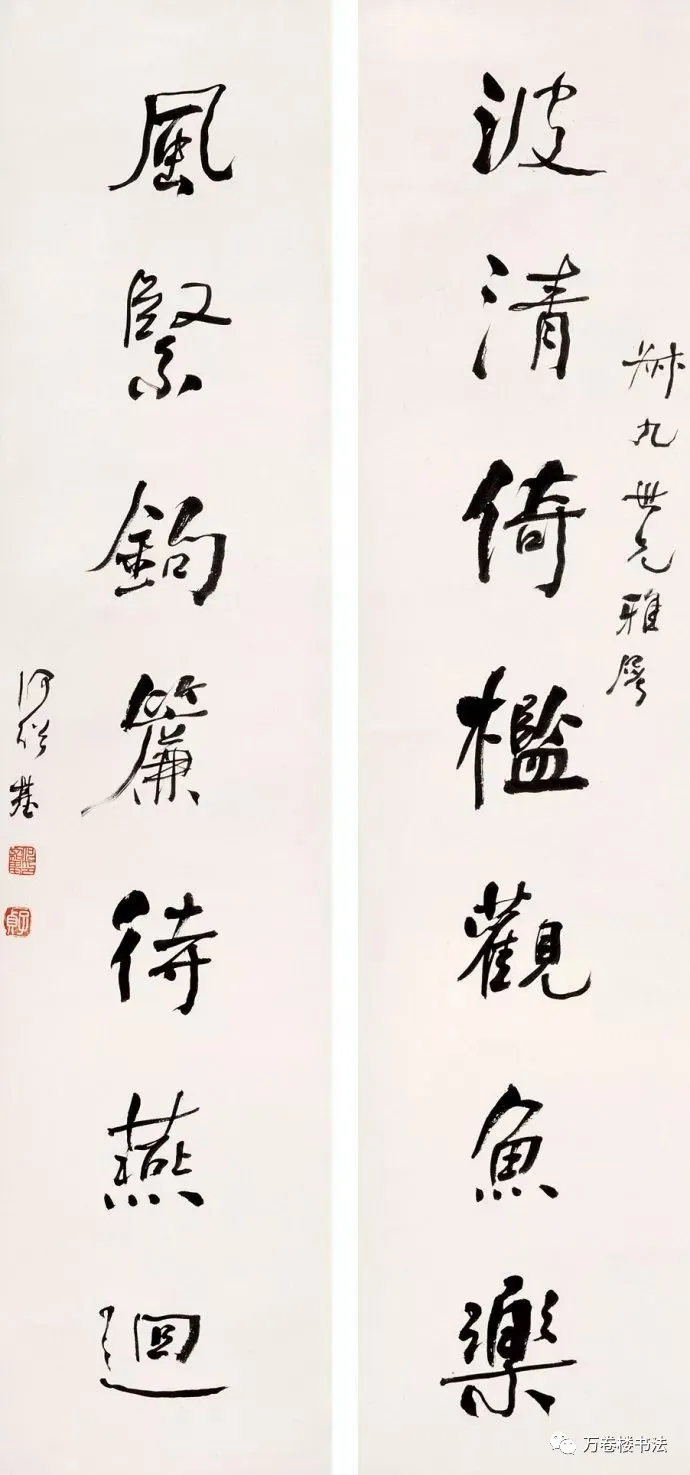 波清倚檻觀魚樂
九世兄雅屬
風緊鉤簾待燕迴
何紹基
万卷楼书法